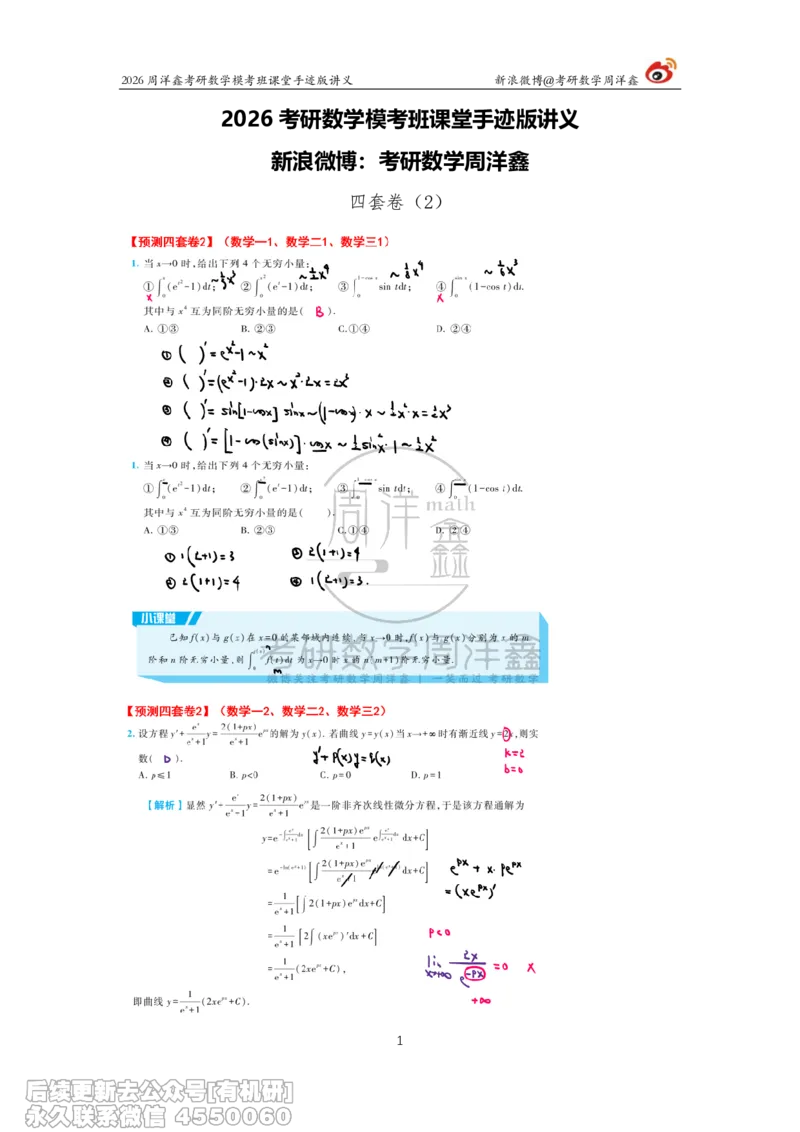 2026周洋鑫考研数学模考班课堂手迹版讲义 新浪微博@考研数学周洋鑫
2026 考研数学模考班课堂手迹版讲义
新浪微博：考研数学周洋鑫
四套卷（2）
【预测四套卷2】（数学一1、数学二1、数学三1）
1. 当 x→0 时,给出下列 4 个无穷小量:
① ∫₀ˣ (e^{t²}-1)dt; ~⅓x³ ② ∫₀^{x²} (e^t-1)dt; ~½x⁴ ③ ∫₀^{1-cos x} sin tdt; ~⅛x⁴ ④ ∫₀^{sin x} (1-cos t)dt. ~⅙x³
x x
其中与 x⁴ 互为同阶无穷小量的是( B ).
A. ①③ B. ②③ C.①④ D. ②④
① ( )'=e^{x²}-1~x²
② ( )'=(e^{x²}-1)·2x~x²·2x=2x³
③ ( )'= sin[1-cosx] sinx~(1-cosx)·x~½x²·x=½x³
④ ( )'=[1-cos(sinx)]·cosx ~ ½sin²x·1~½x²
1. 当 x→0 时,给出下列 4 个无穷小量:
① ∫₀ˣ (e^{t²}-1)dt; ② ∫₀^{x²} (e^t-1)dt; ③ ∫₀^{1-cos x} sin tdt; ④ ∫₀^{sin x} (1-cos t)dt.
其中与 x⁴ 互为同阶无穷小量的是( ).
A. ①③ B. ②③ C.①④ D. ②④
① 1(2+1)=3 ③ 2(1+1)=4
② 2(1+1)=4 ④ 1(2+1)=3.
周洋鑫 math
小课堂
已知 f(x)与 g(x)在 x=0 的某邻域内连续,当 x→0 时,f(x)与 g(x)分别为 x 的 m
阶和 n 阶无穷小量,则 ∫₀^{g(x)} f(t)dt 为 x→0 时 x 的 n(m+1)阶无穷小量.
n
m
考研数学周洋鑫
微博关注考研数学周洋鑫 | 一笑而过 考研数学
【预测四套卷2】（数学一2、数学二2、数学三2）
2. 设方程 y'+ e^x/(e^x+1) y= 2(1+px)/(e^x+1) e^{px} 的解为 y(x). 若曲线 y=y(x)当 x→+∞ 时有渐近线 y=2x,则实
数( D ). y'+P(x)y=Q(x) k=2
b=0
A. p≤1 B. p<0 C. p=0 D. p=1
【解析】显然 y'+ e^x/(e^x+1) y= 2(1+px)/(e^x+1) e^{px} 是一阶非齐次线性微分方程,于是该方程通解为
y=e^{-∫ e^x/(e^x+1) dx} [∫ 2(1+px)e^{px}/(e^x+1) e^{∫ e^x/(e^x+1) dx} dx+C]
=e^{-ln(e^x+1)} [∫ 2(1+px)e^{px}/(e^x+1) e^{ln(e^x+1)} dx+C] e^{px} + x·pe^{px}
=(xe^{px})'
= 1/(e^x+1) [∫ 2(1+px)e^{px}dx+C]
= 1/(e^x+1) [2∫ (xe^{px})'dx+C] p<0
= 1/(e^x+1) (2xe^{px}+C), lim_{x→+∞} 2x/e^{-px} =0 x
+∞
即曲线 y= 1/(e^x+1) (2xe^{px}+C).
1
后续更新去公众号[有机研]
永久联系微信 4550060